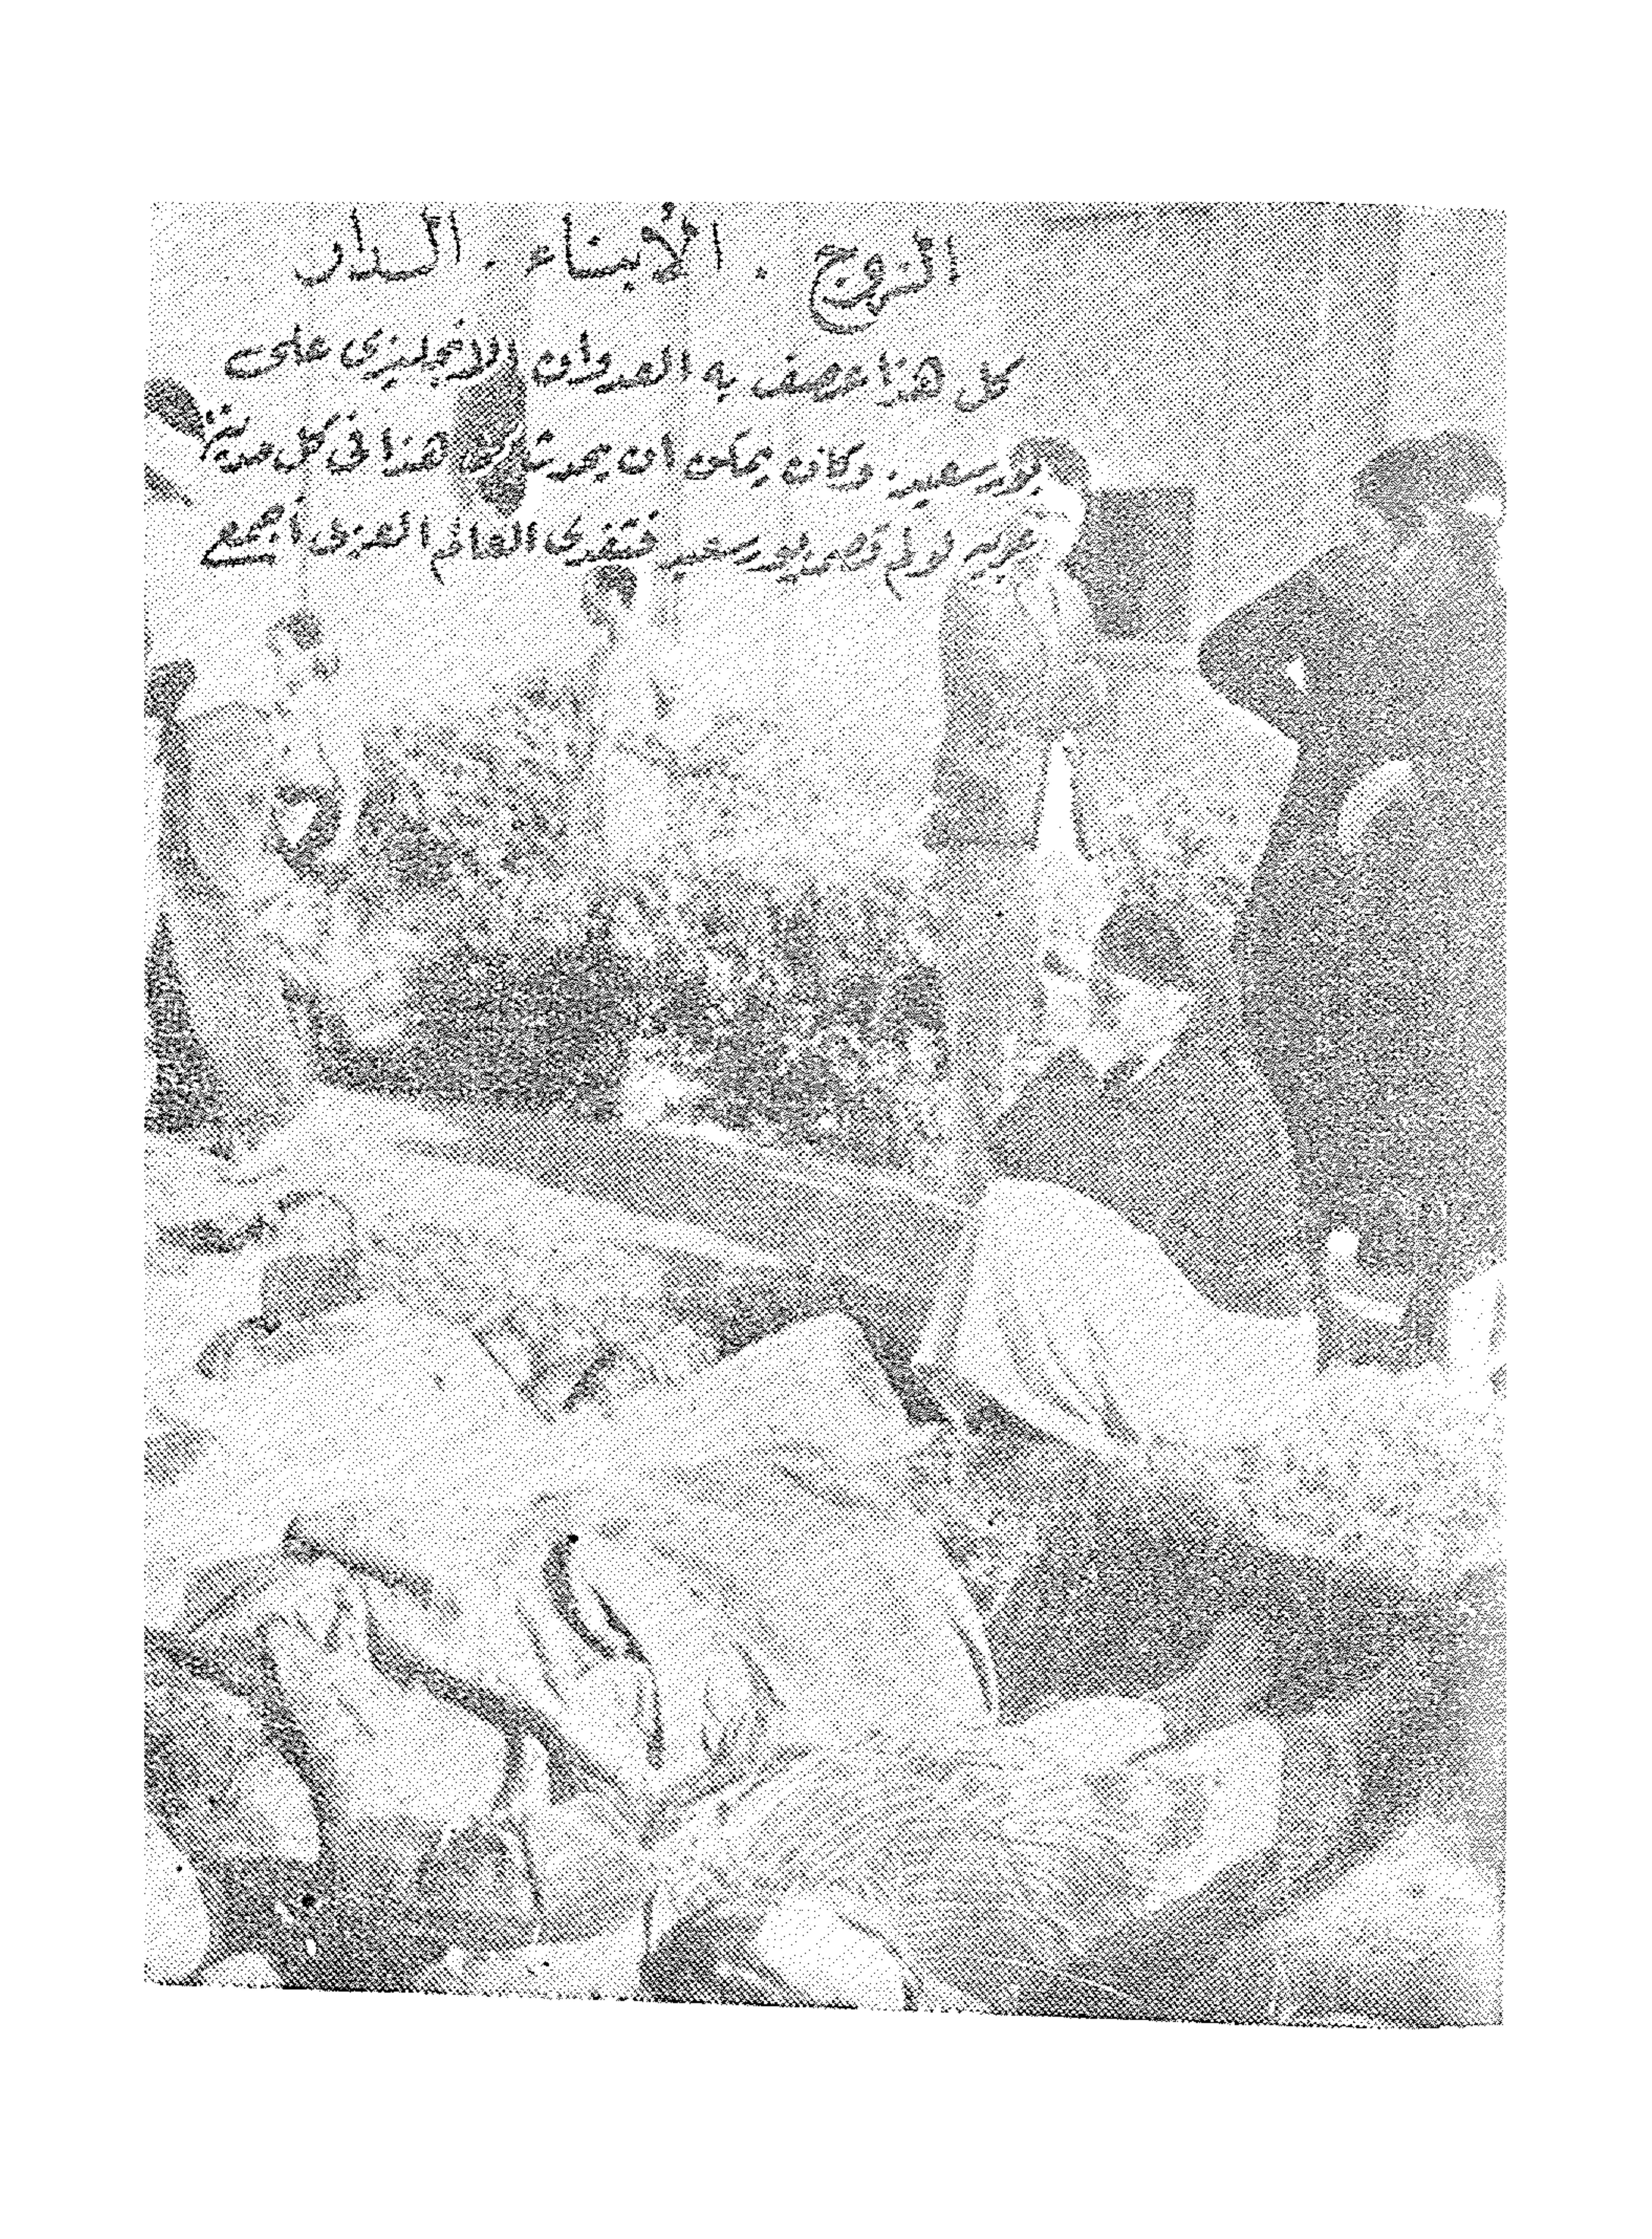 الزوج . الأبناء . الدار
كل هذا عصف به العدوان الانجليزى على
بور سعيد. وكان يمكن ان يحدث مثل هذا فى كل مدينة
عربيه لو لم تصمد بور سعيد فتفدى العالم العربى أجمع